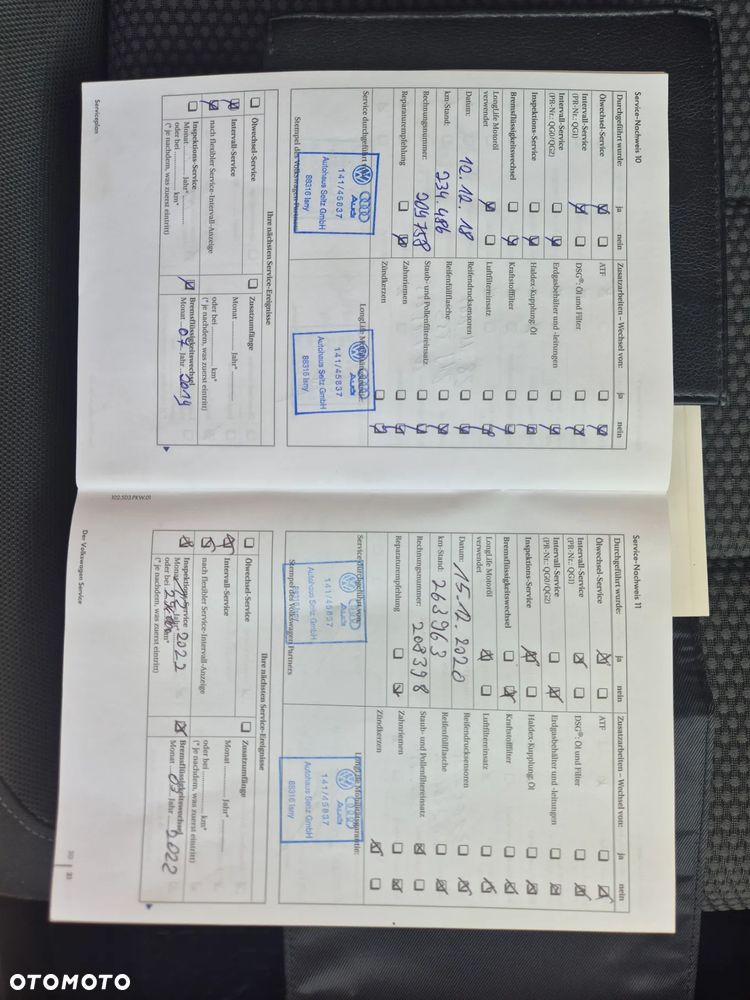 Service-Nachweis 10
Durchgeführt wurde: ja nein
Ölwechsel-Service
Intervall-Service
(PR-Nr.: QG1)
Intervall-Service
(PR-Nr.: QG0/QG2)
Inspektions-Service
Bremsflüssigkeitswechsel
LongLife Motoröl
verwendet
Datum: 12.12.18
km-Stand: 234.486
Rechnungsnummer: 209758
Reparaturempfehlung
Service durchgeführt
141/45837
Autohaus Seitz GmbH
88316 Isny
Stempel des Volkswagen Partners
Zusatzarbeiten – Wechsel von: ja nein
ATF
DSG®: Öl und Filter
Erdgasbehälter und -leitungen
Haldex-Kupplung: Öl
Kraftstofffilter
Luftfiltereinsatz
Reifendrucksensoren
Reifenfüllflasche
Staub- und Pollenfiltereinsatz
Zahnriemen
Zündkerzen
Audi
141/45837
Autohaus Seitz GmbH
88316 Isny
Ihre nächsten Service-Ereignisse
Ölwechsel-Service
Intervall-Service
nach flexibler Service-Intervall-Anzeige
Inspektions-Service
Monat Jahr*
oder bei km*
(* je nachdem, was zuerst eintritt)
Zusatzumfänge
Monat Jahr*
oder bei km*
(* je nachdem, was zuerst eintritt)
Bremsflüssigkeitswechsel
Monat 07 Jahr 2019
Serviceplan
102.5D3.PKW.01
Service-Nachweis 11
Durchgeführt wurde: ja nein
Ölwechsel-Service
Intervall-Service
(PR-Nr.: QG1)
Intervall-Service
(PR-Nr.: QG0/QG2)
Inspektions-Service
Bremsflüssigkeitswechsel
LongLife Motoröl
verwendet
Datum: 15.12.2020
km-Stand: 263963
Rechnungsnummer: 208398
Reparaturempfehlung
Service durchgeführt von:
141/45837
Autohaus Seitz GmbH
88316 Isny
Stempel des Volkswagen Partners
Zusatzarbeiten – Wechsel von: ja nein
ATF
DSG®: Öl und Filter
Erdgasbehälter und -leitungen
Haldex-Kupplung: Öl
Kraftstofffilter
Luftfiltereinsatz
Reifendrucksensoren
Reifenfüllflasche
Staub- und Pollenfiltereinsatz
Zahnriemen
Zündkerzen
LongLife Mobilitätsgarantie:
Audi
141/45837
Autohaus Seitz GmbH
88316 Isny
Ihre nächsten Service-Ereignisse
Ölwechsel-Service
Intervall-Service
nach flexibler Service-Intervall-Anzeige
Inspektions-Service
Monat Jahr* 2022
oder bei km*
(* je nachdem, was zuerst eintritt)
Zusatzumfänge
Monat Jahr*
oder bei km*
(* je nachdem, was zuerst eintritt)
Bremsflüssigkeitswechsel
Monat 07 Jahr 2022
Das Volkswagen Service
OTOMOTO